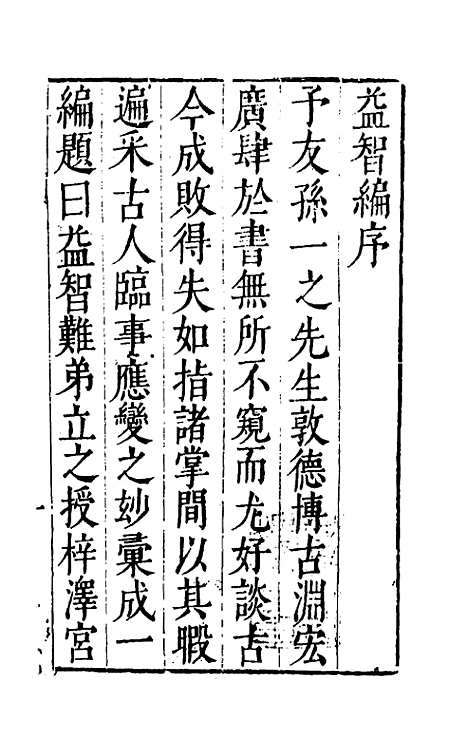 益智編序
予友孫一之先生敦德博古淵宏
廣肆於書無所不窺而尤好談古
今成敗得失如指諸掌間以其暇
遍采古人臨事應變之妙彙成一
編題曰益智難弟立之授梓澤宮